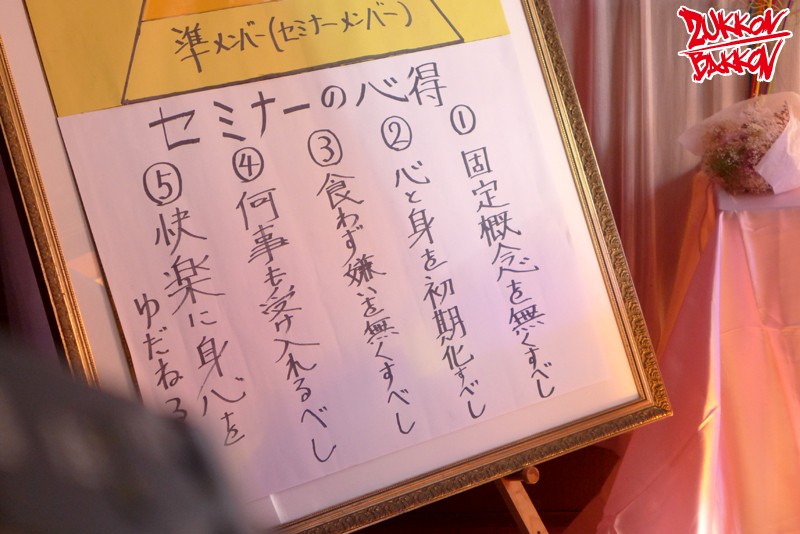 準メンバー(セミナーメンバー)
セミナーの心得
① 固定概念を無くすべし
② 心と身を初期化すべし
③ 食わず嫌いを無くすべし
④ 何事も受け入れるべし
⑤ 快楽に身心を
ゆだねる
ZUKKON
BAKKON